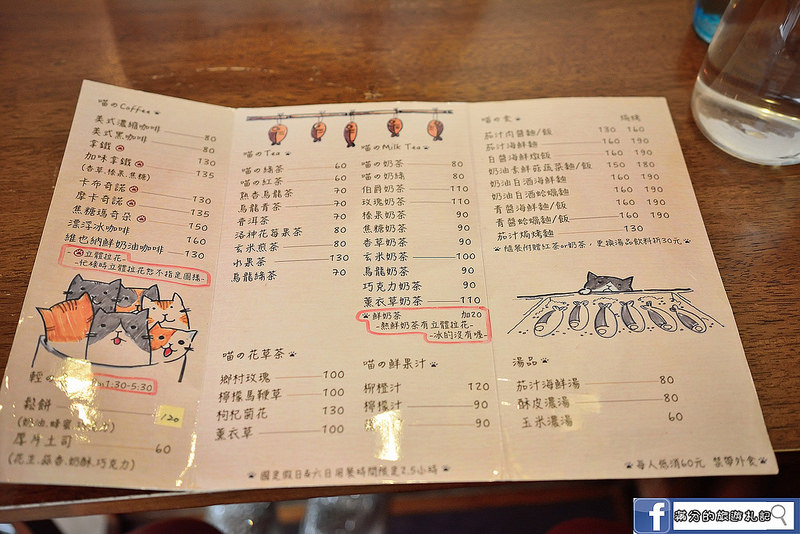 喵のCoffee
美式濃縮咖啡 80
美式黑咖啡 80
拿鐵 130
加味拿鐵 135
(香草.榛果.焦糖)
卡布奇諾 130
摩卡奇諾 135
焦糖瑪奇朵 150
漂浮冰咖啡 160
維也納鮮奶油咖啡 130
-立體拉花-
-忙碌時立體拉花恕不指定圖樣-
輕
1:30-5:30
鬆餅 120
(奶油.蜂蜜
厚片土司 60
(花生.蒜香.奶酥.巧克力)
喵のTea
喵の綠茶 60
喵の紅茶 60
熟香烏龍茶 70
烏龍青茶 70
普洱茶 70
洛神花莓果茶 80
玄米煎茶 80
水果茶 130
烏龍綠茶 70
喵の花草茶
鄉村玫瑰 100
檸檬馬鞭草 100
枸杞菊花 130
薰衣草 100
喵のMilk Tea
喵の奶茶 80
喵の奶綠 80
伯爵奶茶 110
玫瑰奶茶 110
榛果奶茶 90
焦糖奶茶 90
香草奶茶 90
玄米奶茶 100
烏龍奶茶 90
巧克力奶茶 90
薰衣草奶茶 110
鮮奶茶 加20
-熱鮮奶茶有立體拉花-
-冰的沒有喔-
喵の鮮果汁
柳橙汁 120
檸檬汁 90
90
國定假日&六日用餐時間限定2.5小時
喵の食 焗烤
茄汁肉醬麵/飯 130 160
茄汁海鮮麵 160 190
白醬海鮮燉飯 160 190
奶油素鮮菇蔬菜麵/飯 150 180
奶油白酒海鮮麵 160 190
奶油白酒蛤蠣麵 160 190
青醬海鮮麵/飯 160 190
青醬蛤蠣麵/飯 160 190
茄汁焗烤麵 130
隨餐附贈紅茶or奶茶,更換湯品飲料折30元
湯品
茄汁海鮮湯 80
酥皮濃湯 80
玉米濃湯 60
每人低消60元 禁帶外食
f 滿分的旅遊札記